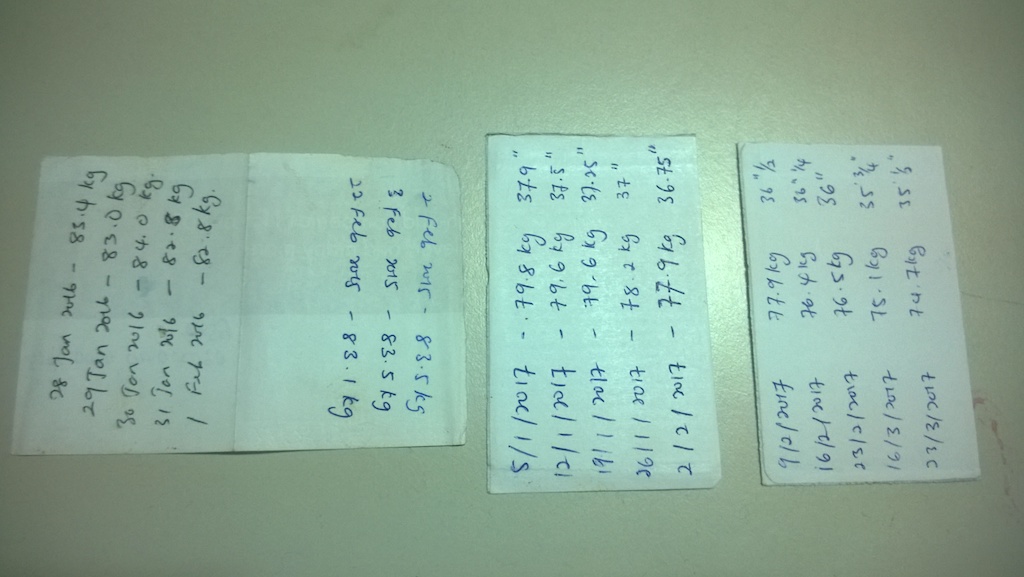 28 Jan 2016 - 83.4 kg
29 Jan 2016 - 83.0 kg
30 Jan 2016 - 84.0 kg.
31 Jan 2016 - 82.8 kg
1 Feb 2016 - 82.8 kg.
2 Feb 2015 - 83.5 kg
3 Feb 2015 - 83.5 kg
22 Feb 2015 - 83.1 kg
5/1/2017 - 79.8 kg 37.9"
12/1/2017 - 79.6 kg 37.5"
19/1/2017 - 79.6 kg 37.25"
26/1/2017 - 78.2 kg 37"
2/2/2017 - 77.9 kg 36.75"
9/2/2017 77.9 kg 36"1/2
16/2/2017 76.4 kg 36"1/4
23/2/2017 76.5 kg 36"
16/3/2017 75.1 kg 35 3/4"
23/3/2017 74.7 kg 35 1/3"